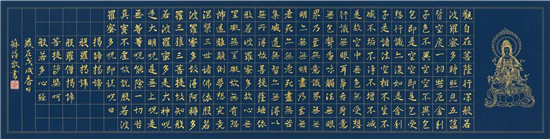 觀自在菩薩行深般若
波羅蜜多時照見五蘊
皆空度一切苦厄舍利
子色不異空空不異色
色即是空空即是色受
想行識亦復如是舍利
子是諸法空相不生不
滅不垢不淨不增不減
是故空中無色無受想
行識無眼耳鼻舌身意
無色聲香味觸法無眼
界乃至無意識界無無
明亦無無明盡乃至無
老死亦無老死盡無苦
集滅道無智亦無得以
無所得故菩提薩埵依
般若波羅蜜多故心無
罣礙無罣礙故無有恐
怖遠離顛倒夢想究竟
涅槃三世諸佛依般若
波羅蜜多故得阿耨多
羅三藐三菩提故知般
若波羅蜜多是大神咒
是大明咒是無上咒是
無等等咒能除一切苦
真實不虛故說般若波
羅蜜多咒即說咒曰
揭諦揭諦
般羅揭諦
般羅僧揭諦
菩提薩婆訶
般若多心經
歲在戊戌
敬書